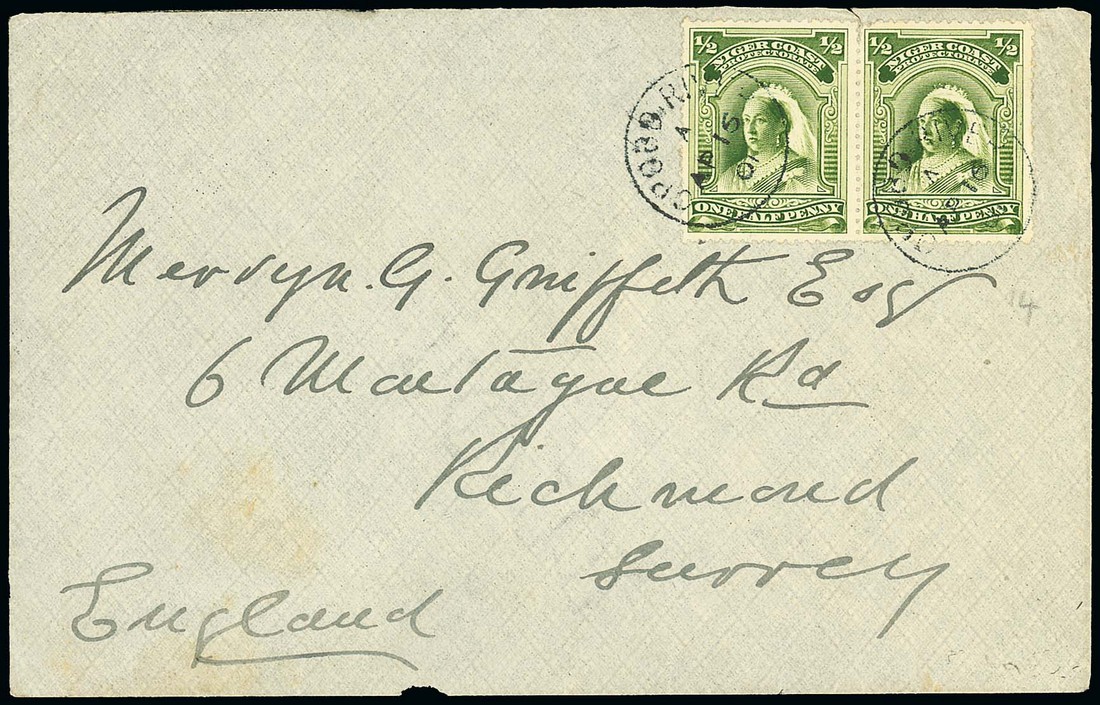 1/2 NIGER COAST 1/2
PROTECTORATE
ONE HALF PENNY
1/2 NIGER COAST 1/2
PROTECTORATE
ONE HALF PENNY
OPOBO RIV
A
AP 15
01
Mervyn. G. Griffith Esq
6 Montague Rd
Richmond
Surrey
England
14